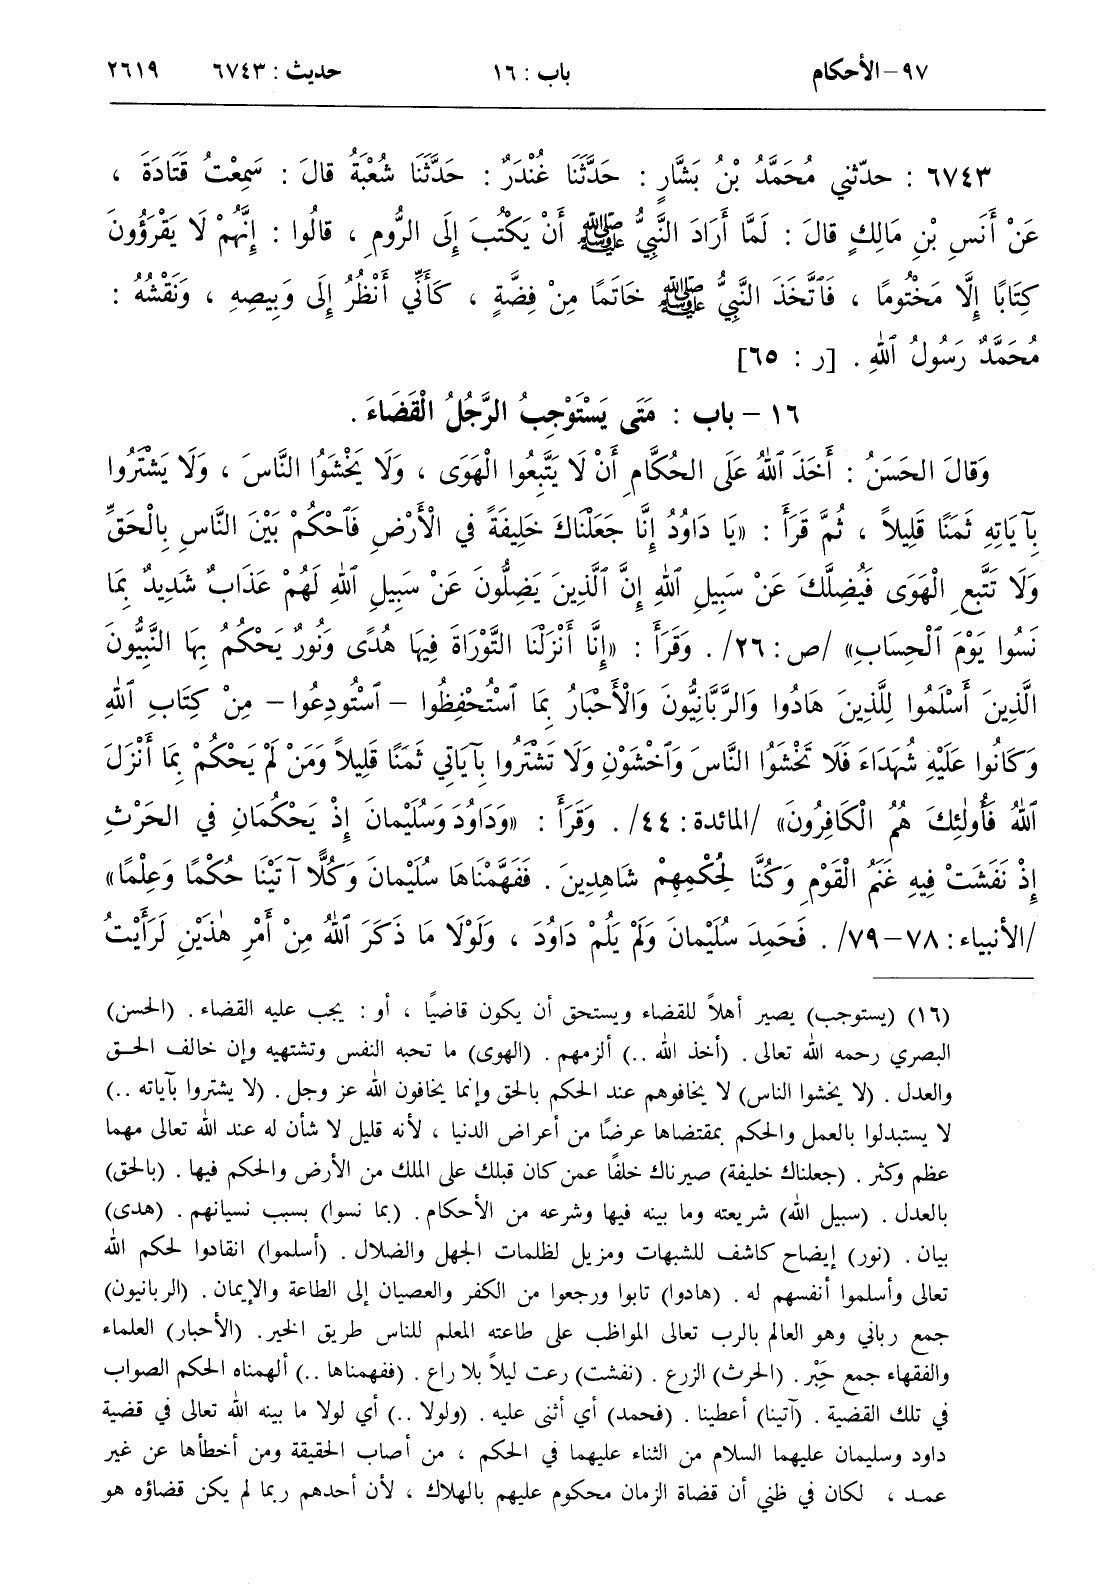 ٩٧ – الأحكام باب : ١٦ حديث : ٦٧٤٣ ٢٦١٩
٦٧٤٣ : حدّثني مُحَمَّدُ بْنُ بَشَّارٍ : حَدَّثَنَا غُنْدَرٌ : حَدَّثَنَا شُعْبَةُ قالَ : سَمِعْتُ قَتَادَةَ ،
عَنْ أَنَسِ بْنِ مَالِكٍ قالَ : لَمَّا أَرَادَ النَّبِيُّ ﷺ أَنْ يَكْتُبَ إِلَى الرُّومِ ، قالُوا : إِنَّهُمْ لَا يَقْرَؤُونَ
كِتَابًا إِلَّا مَخْتُومًا ، فَٱتَّخَذَ النَّبِيُّ ﷺ خَاتَمًا مِنْ فِضَّةٍ ، كَأَنِّي أَنْظُرُ إِلَى وَبِيصِهِ ، وَنَقْشُهُ :
مُحَمَّدٌ رَسُولُ ٱللهِ . [ر : ٦٥]
١٦ – باب : مَتَى يَسْتَوْجِبُ الرَّجُلُ الْقَضَاءَ .
وَقالَ الحَسَنُ : أَخَذَ ٱللهُ عَلَى الحُكَّامِ أَنْ لَا يَتَّبِعُوا الْهَوَى ، وَلَا يَخْشَوُا النَّاسَ ، وَلَا يَشْتَرُوا
بِآيَاتِهِ ثَمَنًا قَلِيلاً ، ثُمَّ قَرَأَ : «يَا دَاوُدُ إِنَّا جَعَلْنَاكَ خَلِيفَةً فِي الْأَرْضِ فَٱحْكُمْ بَيْنَ النَّاسِ بِالْحَقِّ
وَلَا تَتَّبِعِ الْهَوَى فَيُضِلَّكَ عَنْ سَبِيلِ ٱللهِ إِنَّ الَّذِينَ يَضِلُّونَ عَنْ سَبِيلِ ٱللهِ لَهُمْ عَذَابٌ شَدِيدٌ بِمَا
نَسُوا يَوْمَ ٱلْحِسَابِ» /ص : ٢٦/ . وَقَرَأَ : «إِنَّا أَنْزَلْنَا التَّوْرَاةَ فِيهَا هُدًى وَنُورٌ يَحْكُمُ بِهَا النَّبِيُّونَ
الَّذِينَ أَسْلَمُوا لِلَّذِينَ هَادُوا وَالرَّبَّانِيُّونَ وَالْأَحْبَارُ بِمَا ٱسْتُحْفِظُوا – ٱسْتُودِعُوا – مِنْ كِتَابِ ٱللهِ
وَكَانُوا عَلَيْهِ شُهَدَاءَ فَلَا تَخْشَوُا النَّاسَ وَٱخْشَوْنِ وَلَا تَشْتَرُوا بِآيَاتِي ثَمَنًا قَلِيلاً وَمَنْ لَمْ يَحْكُمْ بِمَا أَنْزَلَ
ٱللهُ فَأُولٰئِكَ هُمُ الْكَافِرُونَ» /المائدة : ٤٤/ . وَقَرَأَ : «وَدَاوُدَ وَسُلَيْمانَ إِذْ يَحْكُمَانِ فِي الحَرْثِ
إِذْ نَفَشَتْ فِيهِ غَنَمُ الْقَوْمِ وَكُنَّا لِحُكْمِهِمْ شَاهِدِينَ . فَفَهَّمْنَاهَا سُلَيْمانَ وَكُلًّا آتَيْنَا حُكْمًا وَعِلْمًا»
/الأنبياء : ٧٨ – ٧٩/ . فَحَمِدَ سُلَيْمانَ وَلَمْ يَلُمْ دَاوُدَ ، وَلَوْلَا مَا ذَكَرَ ٱللهُ مِنْ أَمْرِ هٰذَيْنِ لَرَأَيْتُ
(١٦) (يستوجب) يصير أهلاً للقضاء ويستحق أن يكون قاضيًا ، أو : يجب عليه القضاء . (الحسن)
البصري رحمه الله تعالى . (أخذ الله ..) ألزمهم . (الهوى) ما تحبه النفس وتشتهيه وإن خالف الحق
والعدل . (لا يخشوا الناس) لا يخافوهم عند الحكم بالحق وإنما يخافون الله عز وجل . (لا يشتروا بآياته ..)
لا يستبدلوا بالعمل والحكم بمقتضاها عرضًا من أعراض الدنيا ، لأنه قليل لا شأن له عند الله تعالى مهما
عظم وكثر . (جعلناك خليفة) صيرناك خلفًا عمن كان قبلك على الملك من الأرض والحكم فيها . (بالحق)
بالعدل . (سبيل الله) شريعته وما بينه فيها وشرعه من الأحكام . (بما نسوا) بسبب نسيانهم . (هدى)
بيان . (نور) إيضاح كاشف للشبهات ومزيل لظلمات الجهل والضلال . (أسلموا) انقادوا لحكم الله
تعالى وأسلموا أنفسهم له . (هادوا) تابوا ورجعوا من الكفر والعصيان إلى الطاعة والإيمان . (الربانيون)
جمع رباني وهو العالم بالرب تعالى المواظب على طاعته المعلم للناس طريق الخير. (الأحبار) العلماء
والفقهاء جمع حَِبْر . (الحرث) الزرع . (نفشت) رعت ليلاً بلا راع . (ففهمناها ..) ألهمناه الحكم الصواب
في تلك القضية . (آتينا) أعطينا . (فحمد) أي أثنى عليه . (ولولا ..) أي لولا ما بينه الله تعالى في قضية
داود وسليمان عليهما السلام من الثناء عليهما في الحكم ، من أصاب الحقيقة ومن أخطأها عن غير
عمد ، لكان في ظني أن قضاة الزمان محكوم عليهم بالهلاك ، لأن أحدهم ربما لم يكن قضاؤه هو